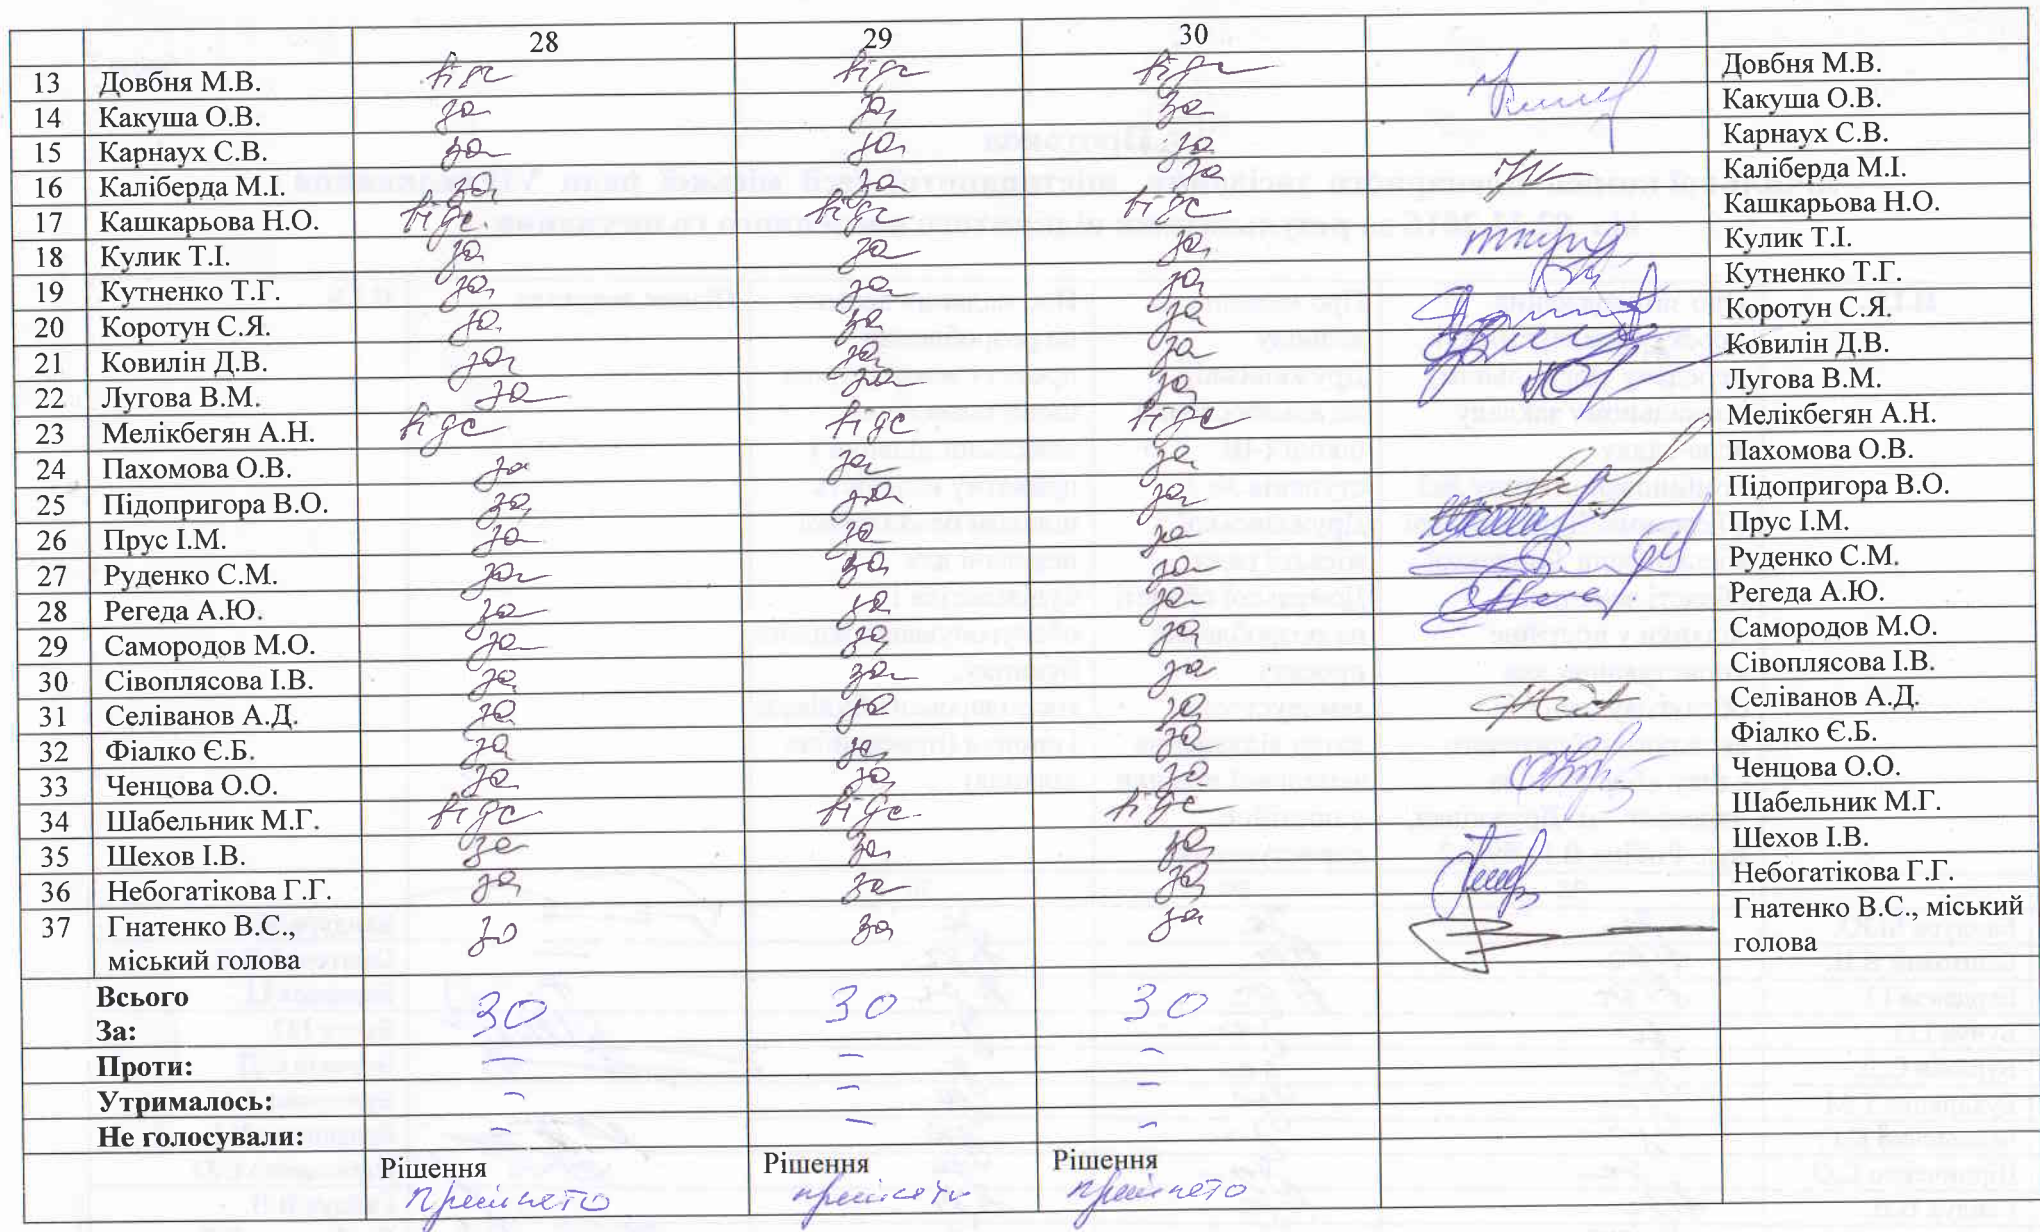 28 29 30
13 Довбня М.В. відс відс відс Довбня М.В.
14 Какуша О.В. за за за Какуша О.В.
15 Карнаух С.В. за за за Карнаух С.В.
16 Каліберда М.І. за за за Каліберда М.І.
17 Кашкарьова Н.О. відс відс відс Кашкарьова Н.О.
18 Кулик Т.І. за за за Кулик Т.І.
19 Кутненко Т.Г. за за за Кутненко Т.Г.
20 Коротун С.Я. за за за Коротун С.Я.
21 Ковилін Д.В. за за за Ковилін Д.В.
22 Лугова В.М. за за за Лугова В.М.
23 Мелікбегян А.Н. відс відс відс Мелікбегян А.Н.
24 Пахомова О.В. за за за Пахомова О.В.
25 Підопригора В.О. за за за Підопригора В.О.
26 Прус І.М. за за за Прус І.М.
27 Руденко С.М. за за за Руденко С.М.
28 Регеда А.Ю. за за за Регеда А.Ю.
29 Самородов М.О. за за за Самородов М.О.
30 Сівоплясова І.В. за за за Сівоплясова І.В.
31 Селіванов А.Д. за за за Селіванов А.Д.
32 Фіалко Є.Б. за за за Фіалко Є.Б.
33 Ченцова О.О. за за за Ченцова О.О.
34 Шабельник М.Г. відс відс відс Шабельник М.Г.
35 Шехов І.В. за за за Шехов І.В.
36 Небогатікова Г.Г. за за за Небогатікова Г.Г.
37 Гнатенко В.С., за за за Гнатенко В.С., міський
міський голова голова
Всього
За: 30 30 30
Проти: – – –
Утрималось: – – –
Не голосували: – – –
Рішення Рішення Рішення
прийнято прийнято прийнято